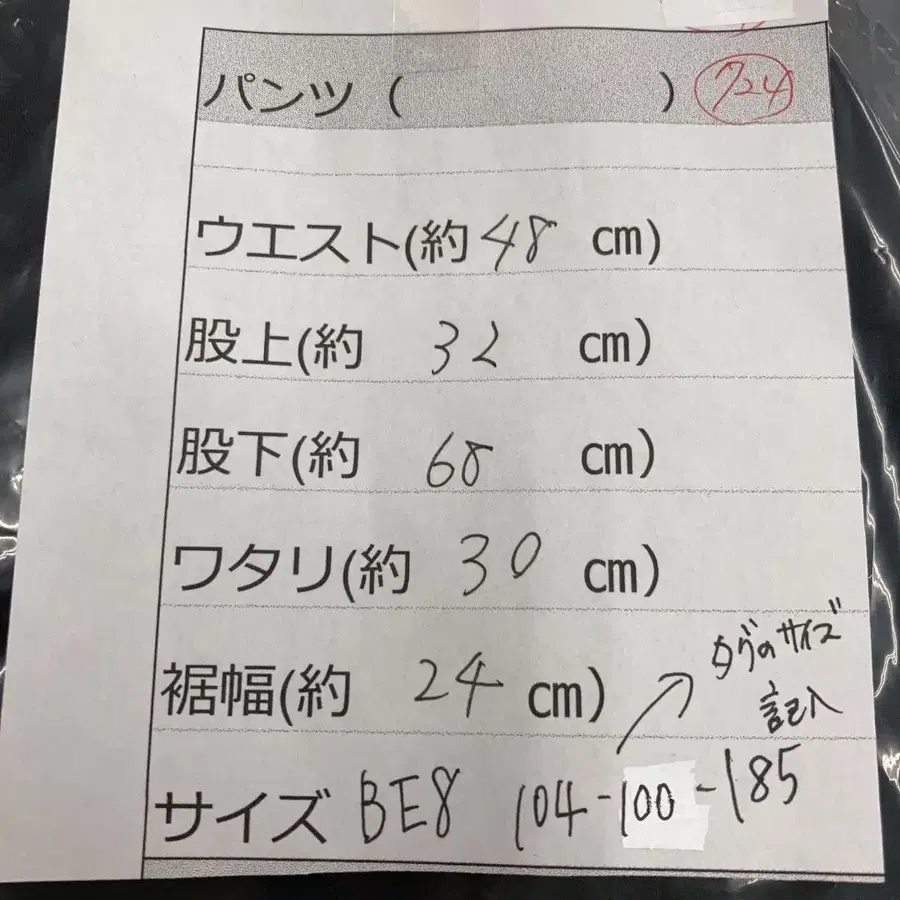 パンツ ( ) 724
ウエスト(約 48 cm)
股上(約 32 cm)
股下(約 68 cm)
ワタリ(約 30 cm)
裾幅(約 24 cm)
タグのサイズ
記入
サイズ BE8 104-100-185